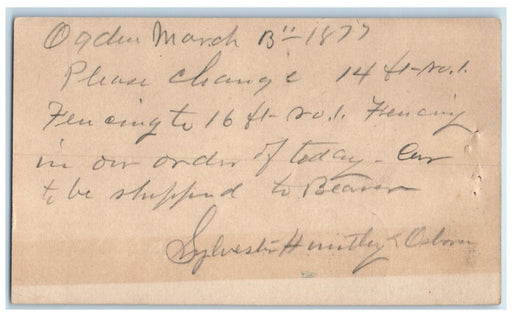 Ogden March 13" 1877
Please change 14 ft - no. 1.
Fencing to 16 ft - no. 1. Fencing
in our order of today - Car
to be shipped to Beaver
Sylvester Huntley & Osborn